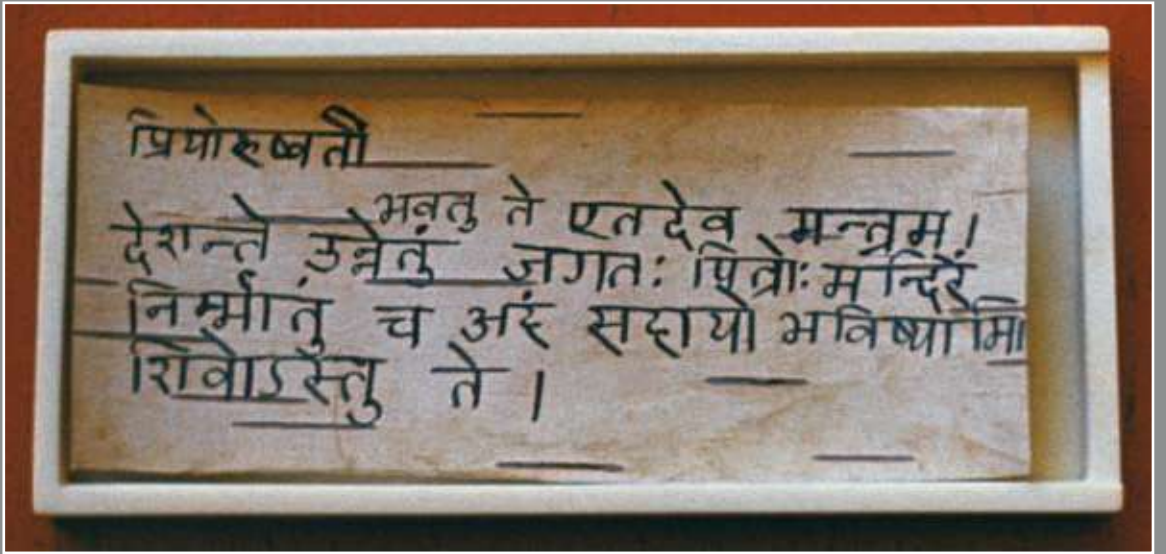 प्रियोरुष्वती
भवतु ते एतदेव मन्त्रम।
देशान्ते उन्नेतुं जगतः पित्रोः मन्दिरं
निर्म्मातुं च अहं सहायो भविष्यामि।
शिवोऽस्तु ते।